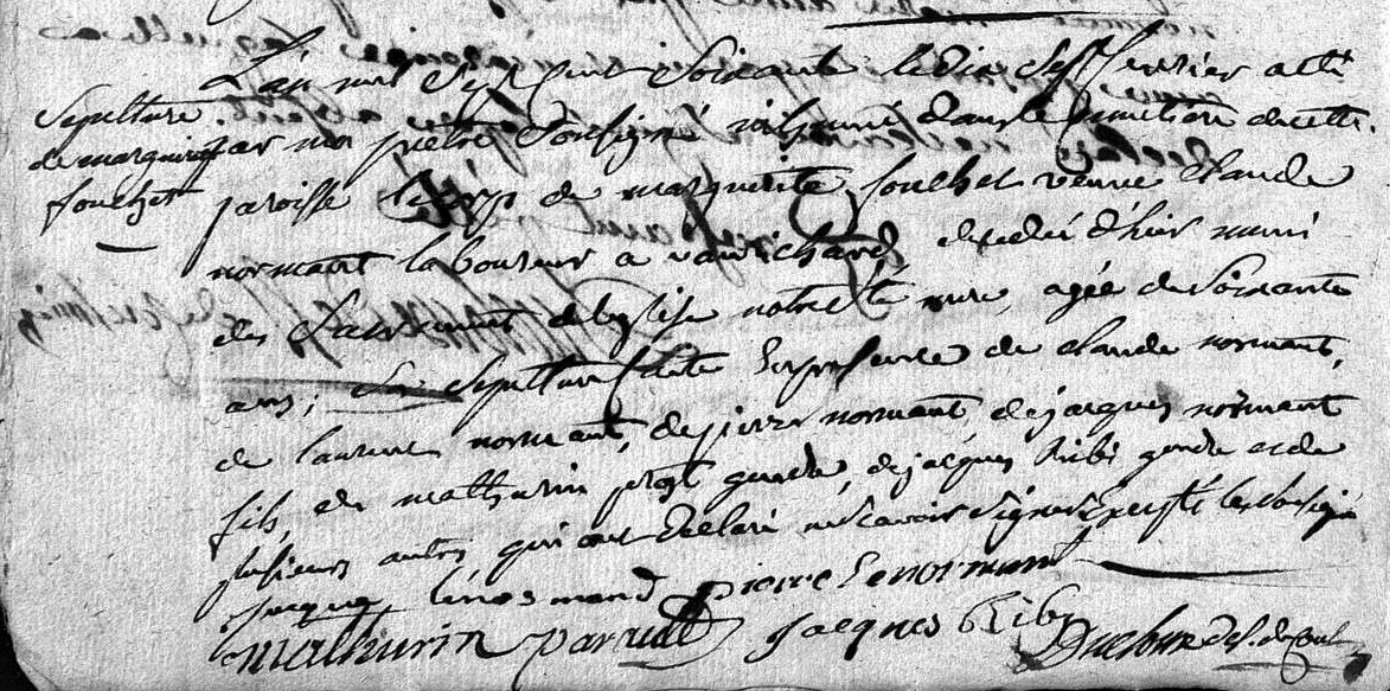 Sepulture
de marguerite
fouchet
L'an mil Sept Cent Soixante le Dix Sept fevrier a été
par moi prêtre Soussigné inhumé dans le cimetiere de cette
paroisse le corp de marguerite fouchet veuve Claude
normant laboureur a decedée d'hier muni
des Sacrements de leglise notre Ste mere, agée de Soixante
ans; La Sepulture faite En presence de claude normant,
de laurent normant, de pierre normant, de jacques normant
fils, de mathurin gendre, de jacques Ribi gendre et de
plusieurs autres qui ont Declaré ne Scavoir Signer Excepté les Soussignés
jacque lenormand pierre Lenormant
Mathurin jacques Ribi